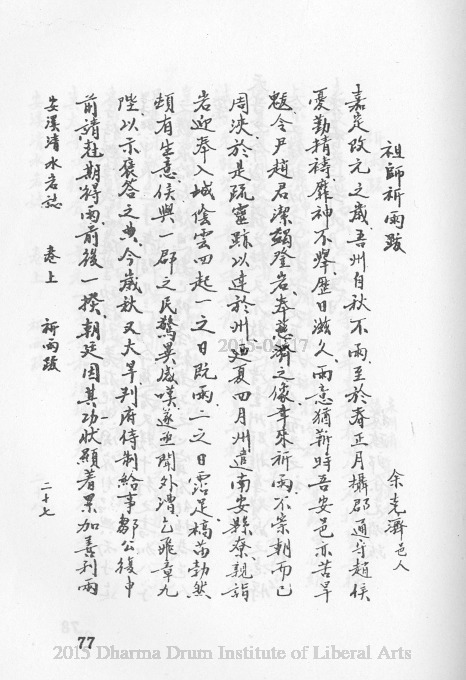 祖師祈雨跋
余克濟邑人
嘉定改元之歲吾州自秋不雨至於春正月攝郡通守趙侯
憂勤精禱靡神不舉歷日滋久雨意猶靳時吾安邑亦苦旱
魃令尹趙君潔蠲登岩奉慈濟之像辜來祈雨不崇朝而已
周浹於是疏靈跡以達於州廼夏四月州遣南安縣丞親詣
岩迎奉入城陰雲四起一之日既雨二之日霑足槁苗勃然
頓有生意侯與一郡之民驚異感嘆遂亟聞外漕乞飛章九
陛以示褒答之典今歲秋又大旱判府侍制給事鄒公復申
前請尅期得雨前後一揆朝廷因其功狀顯着累加善利兩
安溪清水岩誌 卷上 祈雨跋 二十七
77
2015-03-17
2015 Dharma Drum Institute of Liberal Arts